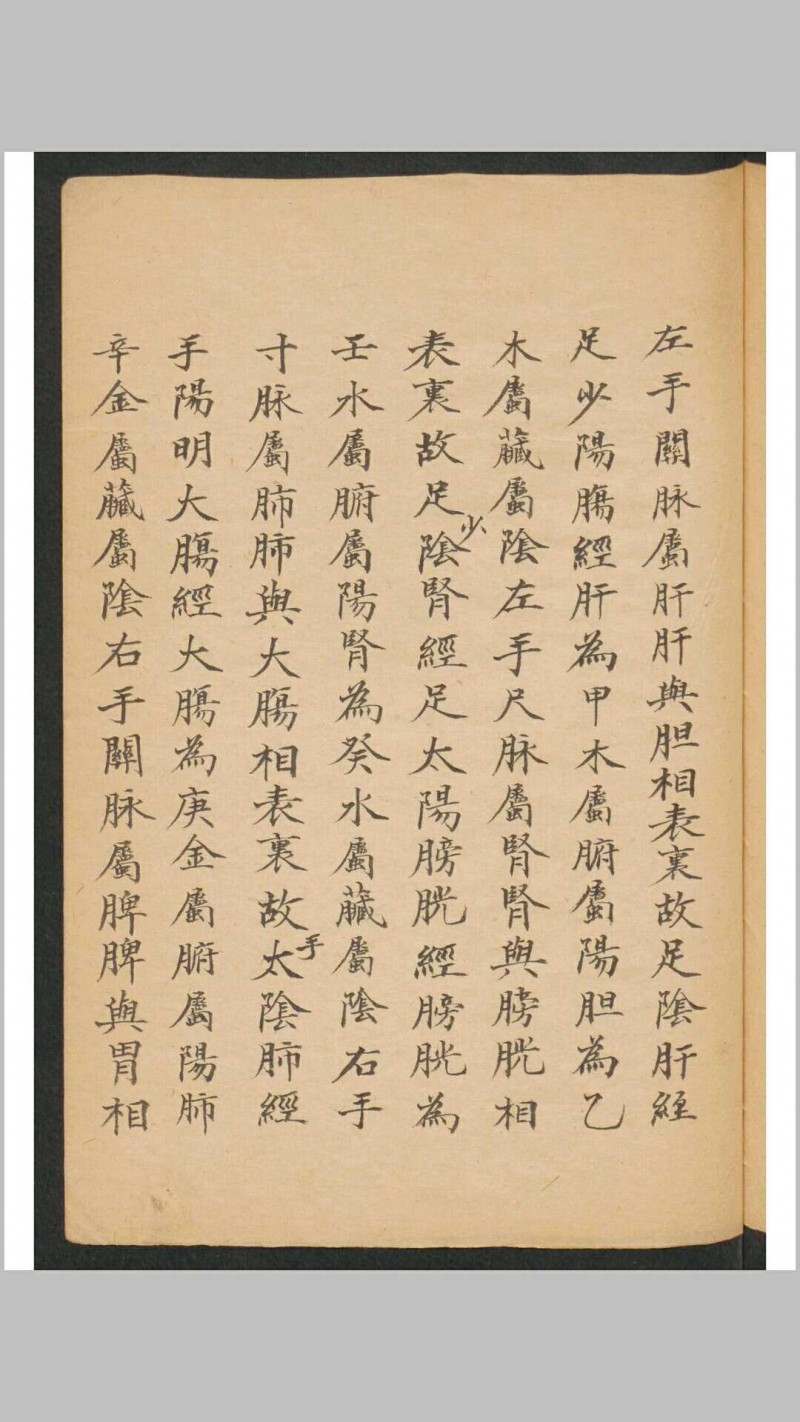 左手關脉屬肝肝與胆相表裏故足陰肝經
足少陽腸經肝為甲木屬腑屬陽胆為乙
木屬藏屬陰左手尺脉屬腎腎與膀胱相
表裏故足少陰腎經足太陽膀胱經膀胱為
壬水屬腑屬陽腎為癸水屬臟屬陰右手
寸脉屬肺肺與大腸相表裏故手太陰肺經
手陽明大腸經大腸為庚金屬腑屬陽肺
辛金屬臟屬陰右手關脉屬脾脾與胃相